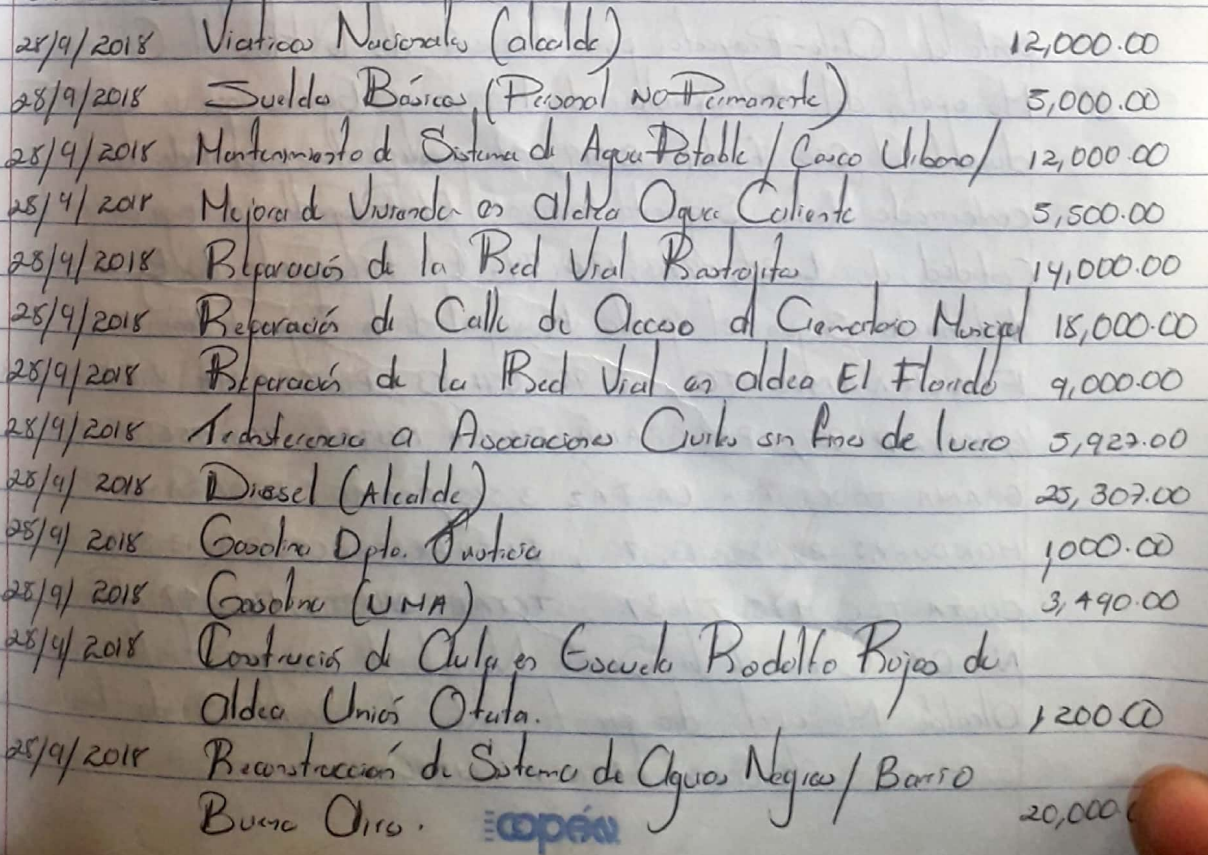 28/9/2018 Viaticos Nacionales (alcalde) 12,000.00
28/9/2018 Sueldos Básicos (Personal No Permanente) 5,000.00
28/9/2018 Mantenimiento de Sistema de Agua Potable / Casco Urbano / 12,000.00
28/9/2018 Mejora de Vivienda en aldea Agua Caliente 5,500.00
28/9/2018 Reparación de la Red Vial Rastrojitos 14,000.00
28/9/2018 Reparación de Calle de Acceso al Cementerio Municipal 18,000.00
28/9/2018 Reparación de la Red Vial en aldea El Florido 9,000.00
28/9/2018 Transferencia a Asociaciones Civiles sin fines de lucro 5,927.00
28/9/2018 Diesel (Alcalde) 25,307.00
28/9/2018 Gasolina Dpto. Justicia 1,000.00
28/9/2018 Gasolina (UMA) 3,490.00
28/9/2018 Costrución de Aula en Escuela Rodolfo Rojas de
aldea Unión Otuta. 1,200.00
28/9/2018 Reconstrucción de Sistema de Aguas Negras / Barrio
Buenos Aires. 20,000.
copán